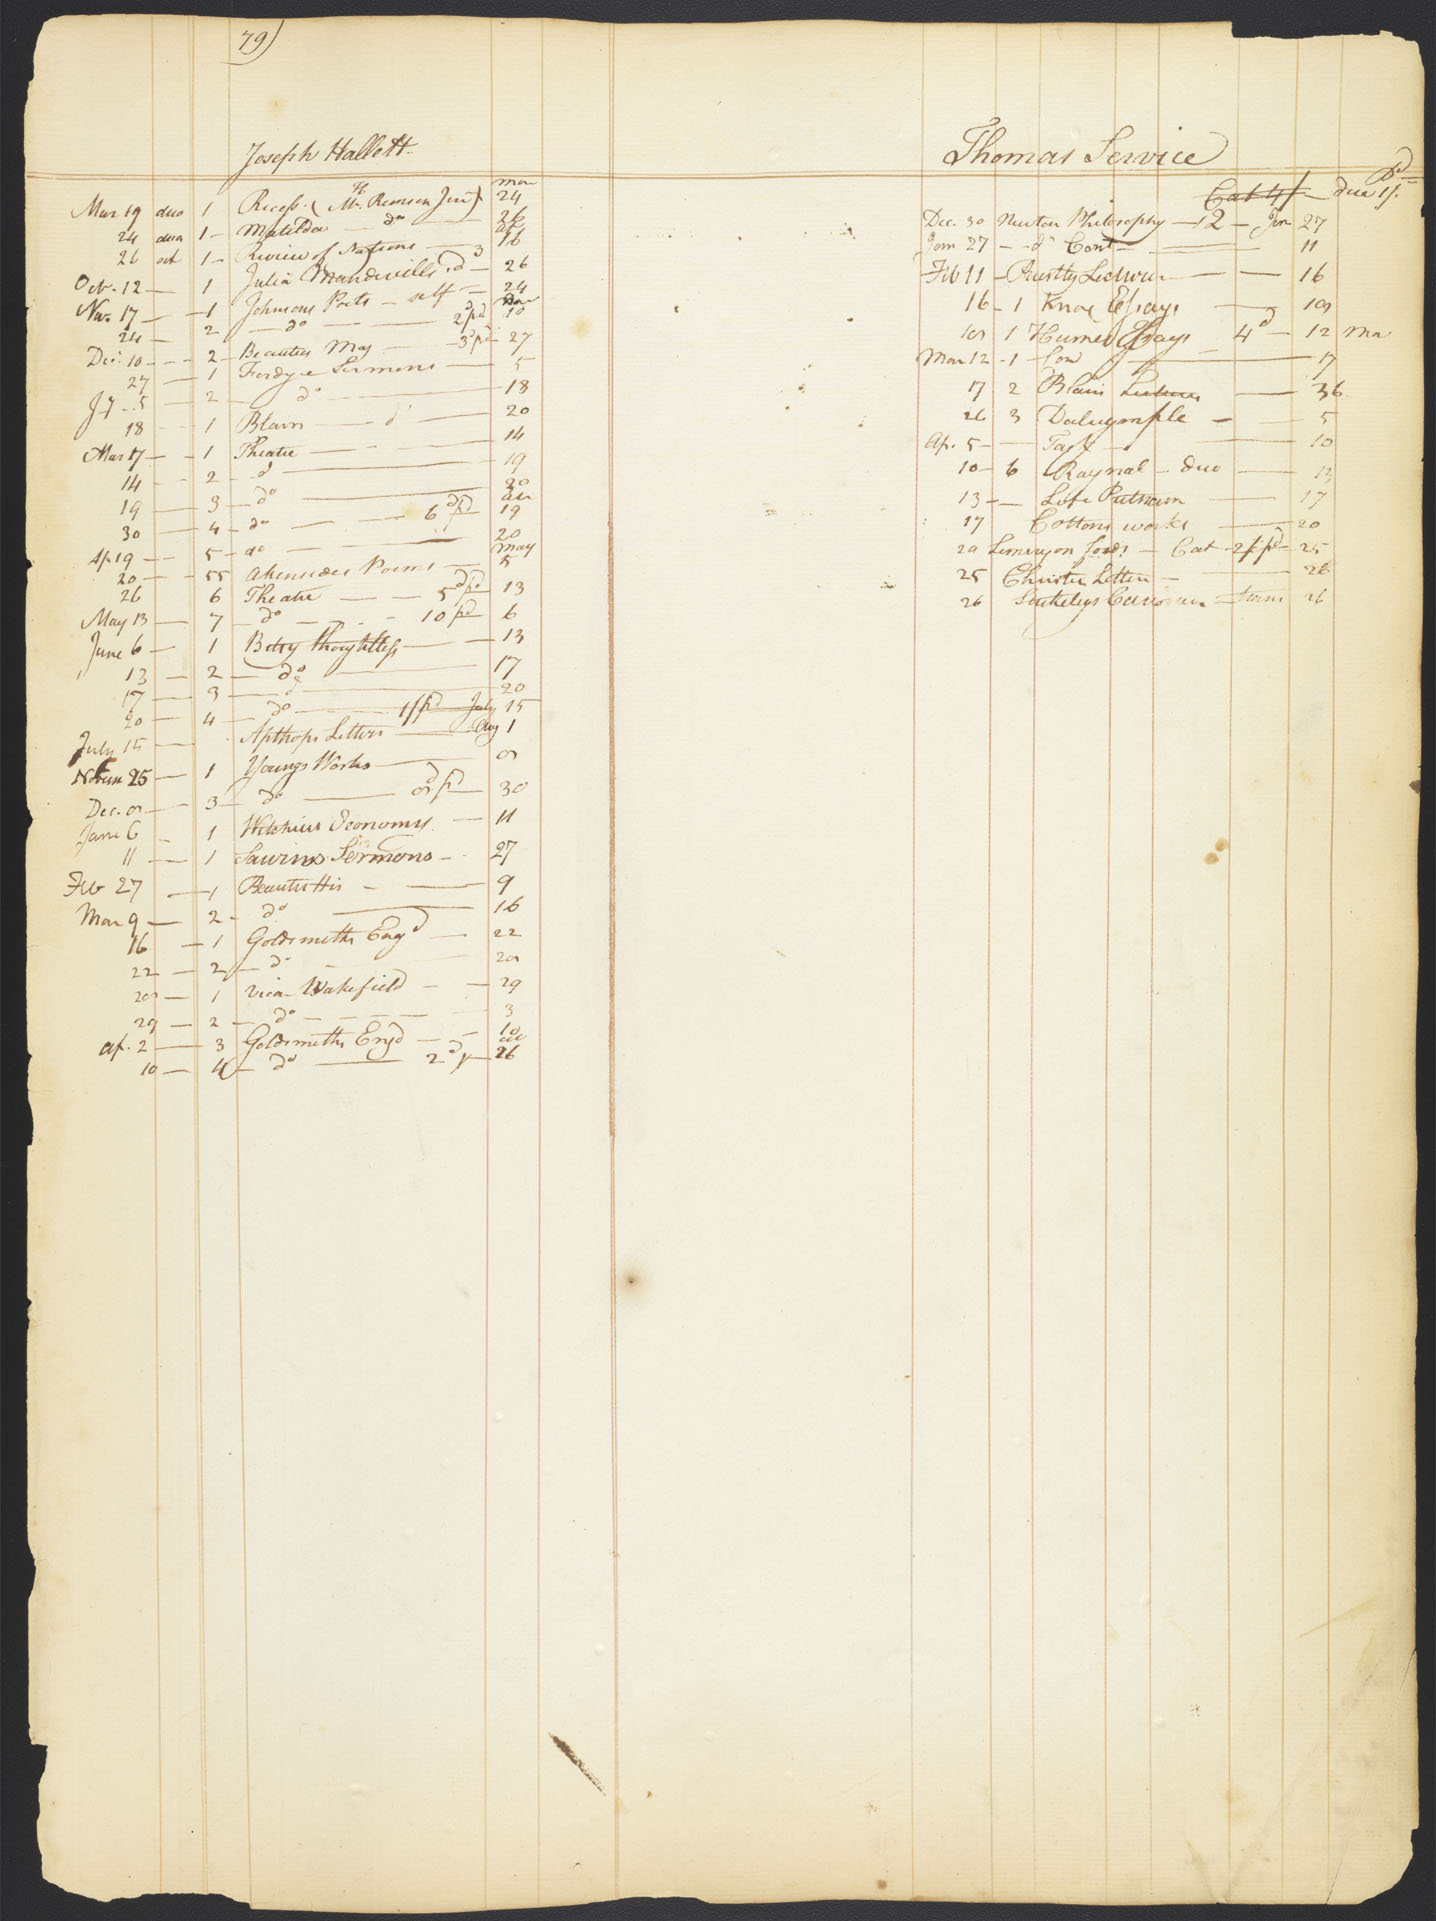 79)
Joseph Hallett
Mar 19 duo 1 Recess. ( Mr. H Remsen Jun) mar 24
24 duo 1 - Matilda - do 26
26 oct 1 - Review of Nations ap 16
Oct. 12 - 1 Julia Mandevills 3 d - 26
Nov. 17 - 1 Johnsons Poets - self - 24
24 - 2 - do - 2d pd 10
Dec. 10 - 2 - Beauties Mag - 3d pd 27
27 - 1 Fordyce Sermons - 5
Jy - 5 - 2 - do - 18
18 - 1 Blairs - do - 20
Mar 17 - 1 Theatre - 14
14 - 2 - do - 19
19 - 3 - do - 30
30 - 4 - do - 6d pd 19
Ap 19 - 5 - do - 20
20 - 55 Akensides Poems - May 5
26 6 Theatre - 5d pd 13
May 13 - 7 - do - 10 pd 6
June 6 - 1 Betsy Thoughtless - 13
13 - 2 - do - 17
17 - 3 - do - 20
20 - 4 - do - 1/ pd July 15
July 15 - Apthorps Letters - Aug 1
Novem 25 - 1 Youngs Works - 8
Dec. 8 - 3 - do - 8d pd 30
June 6 - 1 Economy - 11
11 - 1 Saurins Sermons - 27
Feb 27 - 1 Beauties His - 9
Mar 9 - 2 - do - 16
16 - 1 Goldsmiths Engd - 22
22 - 2 - do - 28
28 - 1 Vicar Wakefield - 29
29 - 2 - do - 3
ap. 2 - 3 Goldsmiths Engd - 10
10 - 4 - do - 2d 26
Thomas Service
Cat 4/ - due 1/. Pd
Dec. 30 Newton Philosophy - 12 - Jan 27
Jan 27 - do Cont - 11
Feb 11 - Priestly Lectures - 16
16 - 1 Knox Essays - 18
18 1 Humes Essays 4d - 12 Ma
Mar 12 - 1 - 17
17 2 Blairs Lectures - 26
26 3 Dalrymple - 5
Ap. 5 - Task - 10
10 - 6 Raynal - duo - 13
13 - Life Putnam - 17
17 Cottons works - 20
20 Lemery on foods - Cat 2/ pd - 25
25 Christie Letters - 26
26 26